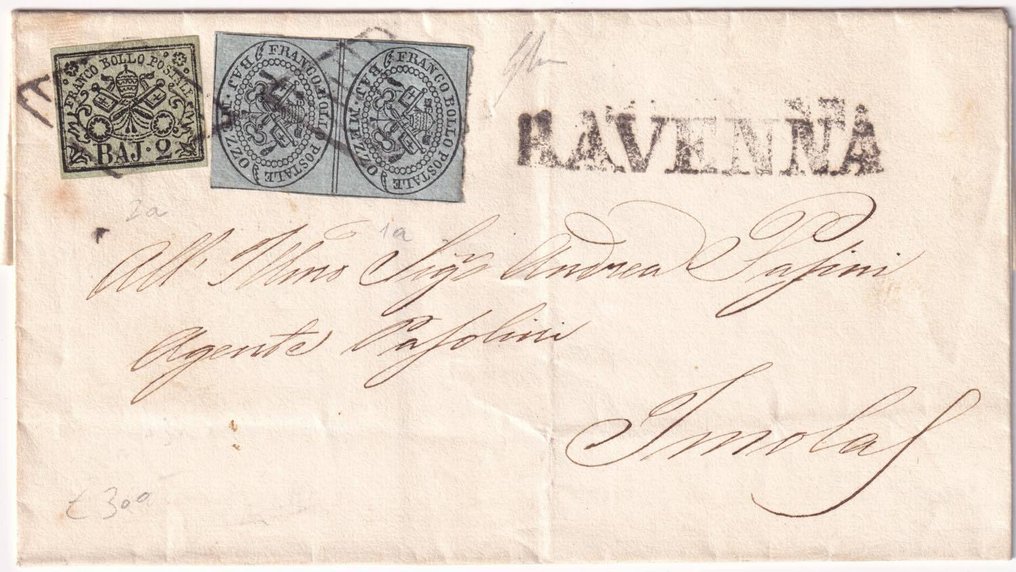 FRANCO BOLLO POSTALE
BAJ·2
FRANCO BOLLO POSTALE
MEZZO BAJ.
FRANCO BOLLO POSTALE
MEZZO BAJ.
RAVENNA
2a
1a
All' Illmo Sigr Andrea Pasini
Agente Pasolini
Imola
£ 300